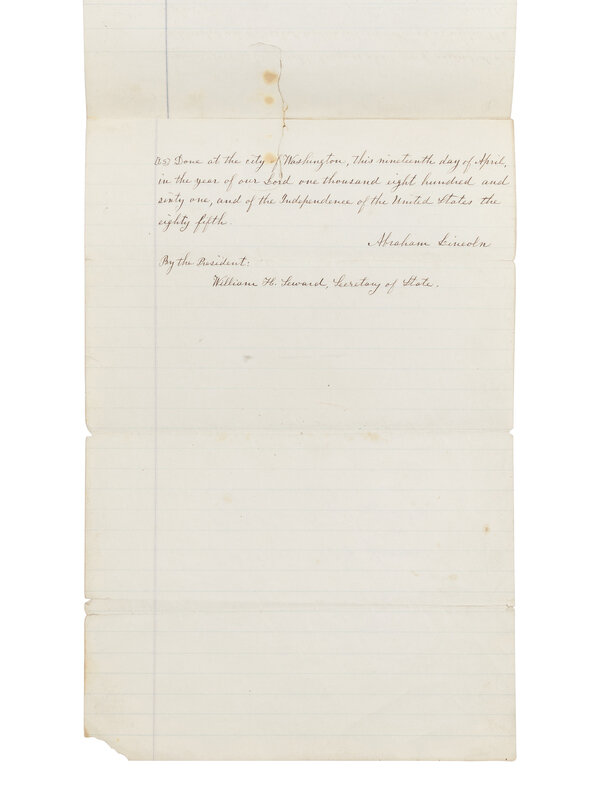 (LS) Done at the city of Washington, this nineteenth day of April,
in the year of our Lord one thousand eight hundred and
sixty one, and of the Independence of the United States the
eighty fifth.
Abraham Lincoln
By the President:
William H. Seward, Secretary of State.